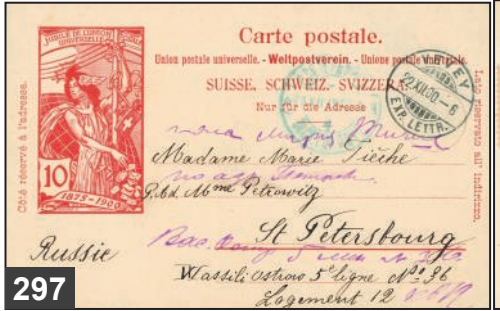 Carte postale.
Union postale universelle. - Weltpostverein. - Unione postale universale.
SUISSE. SCHWEIZ. SVIZZERA.
Nur für die Adresse
JUBILÉ DE L'UNION
UNIVERSELLE
10
1875-1900
Côté réservé à l'adresse.
Lato riservato all' indirizzo.
VEVEY
22.XII.00-6
EXP. LETTR.
Madame Marie Tièche
P. Ad. Mme Petrowitz
St Petersbourg
Russie
Wassili Ostrow 5e ligne No 36
Logement 12
297